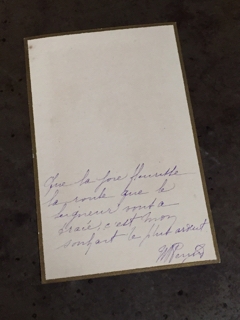 Que la joie fleurisse
la route que le
Seigneur vous a
tracée, c'est mon
souhait le plus ardent